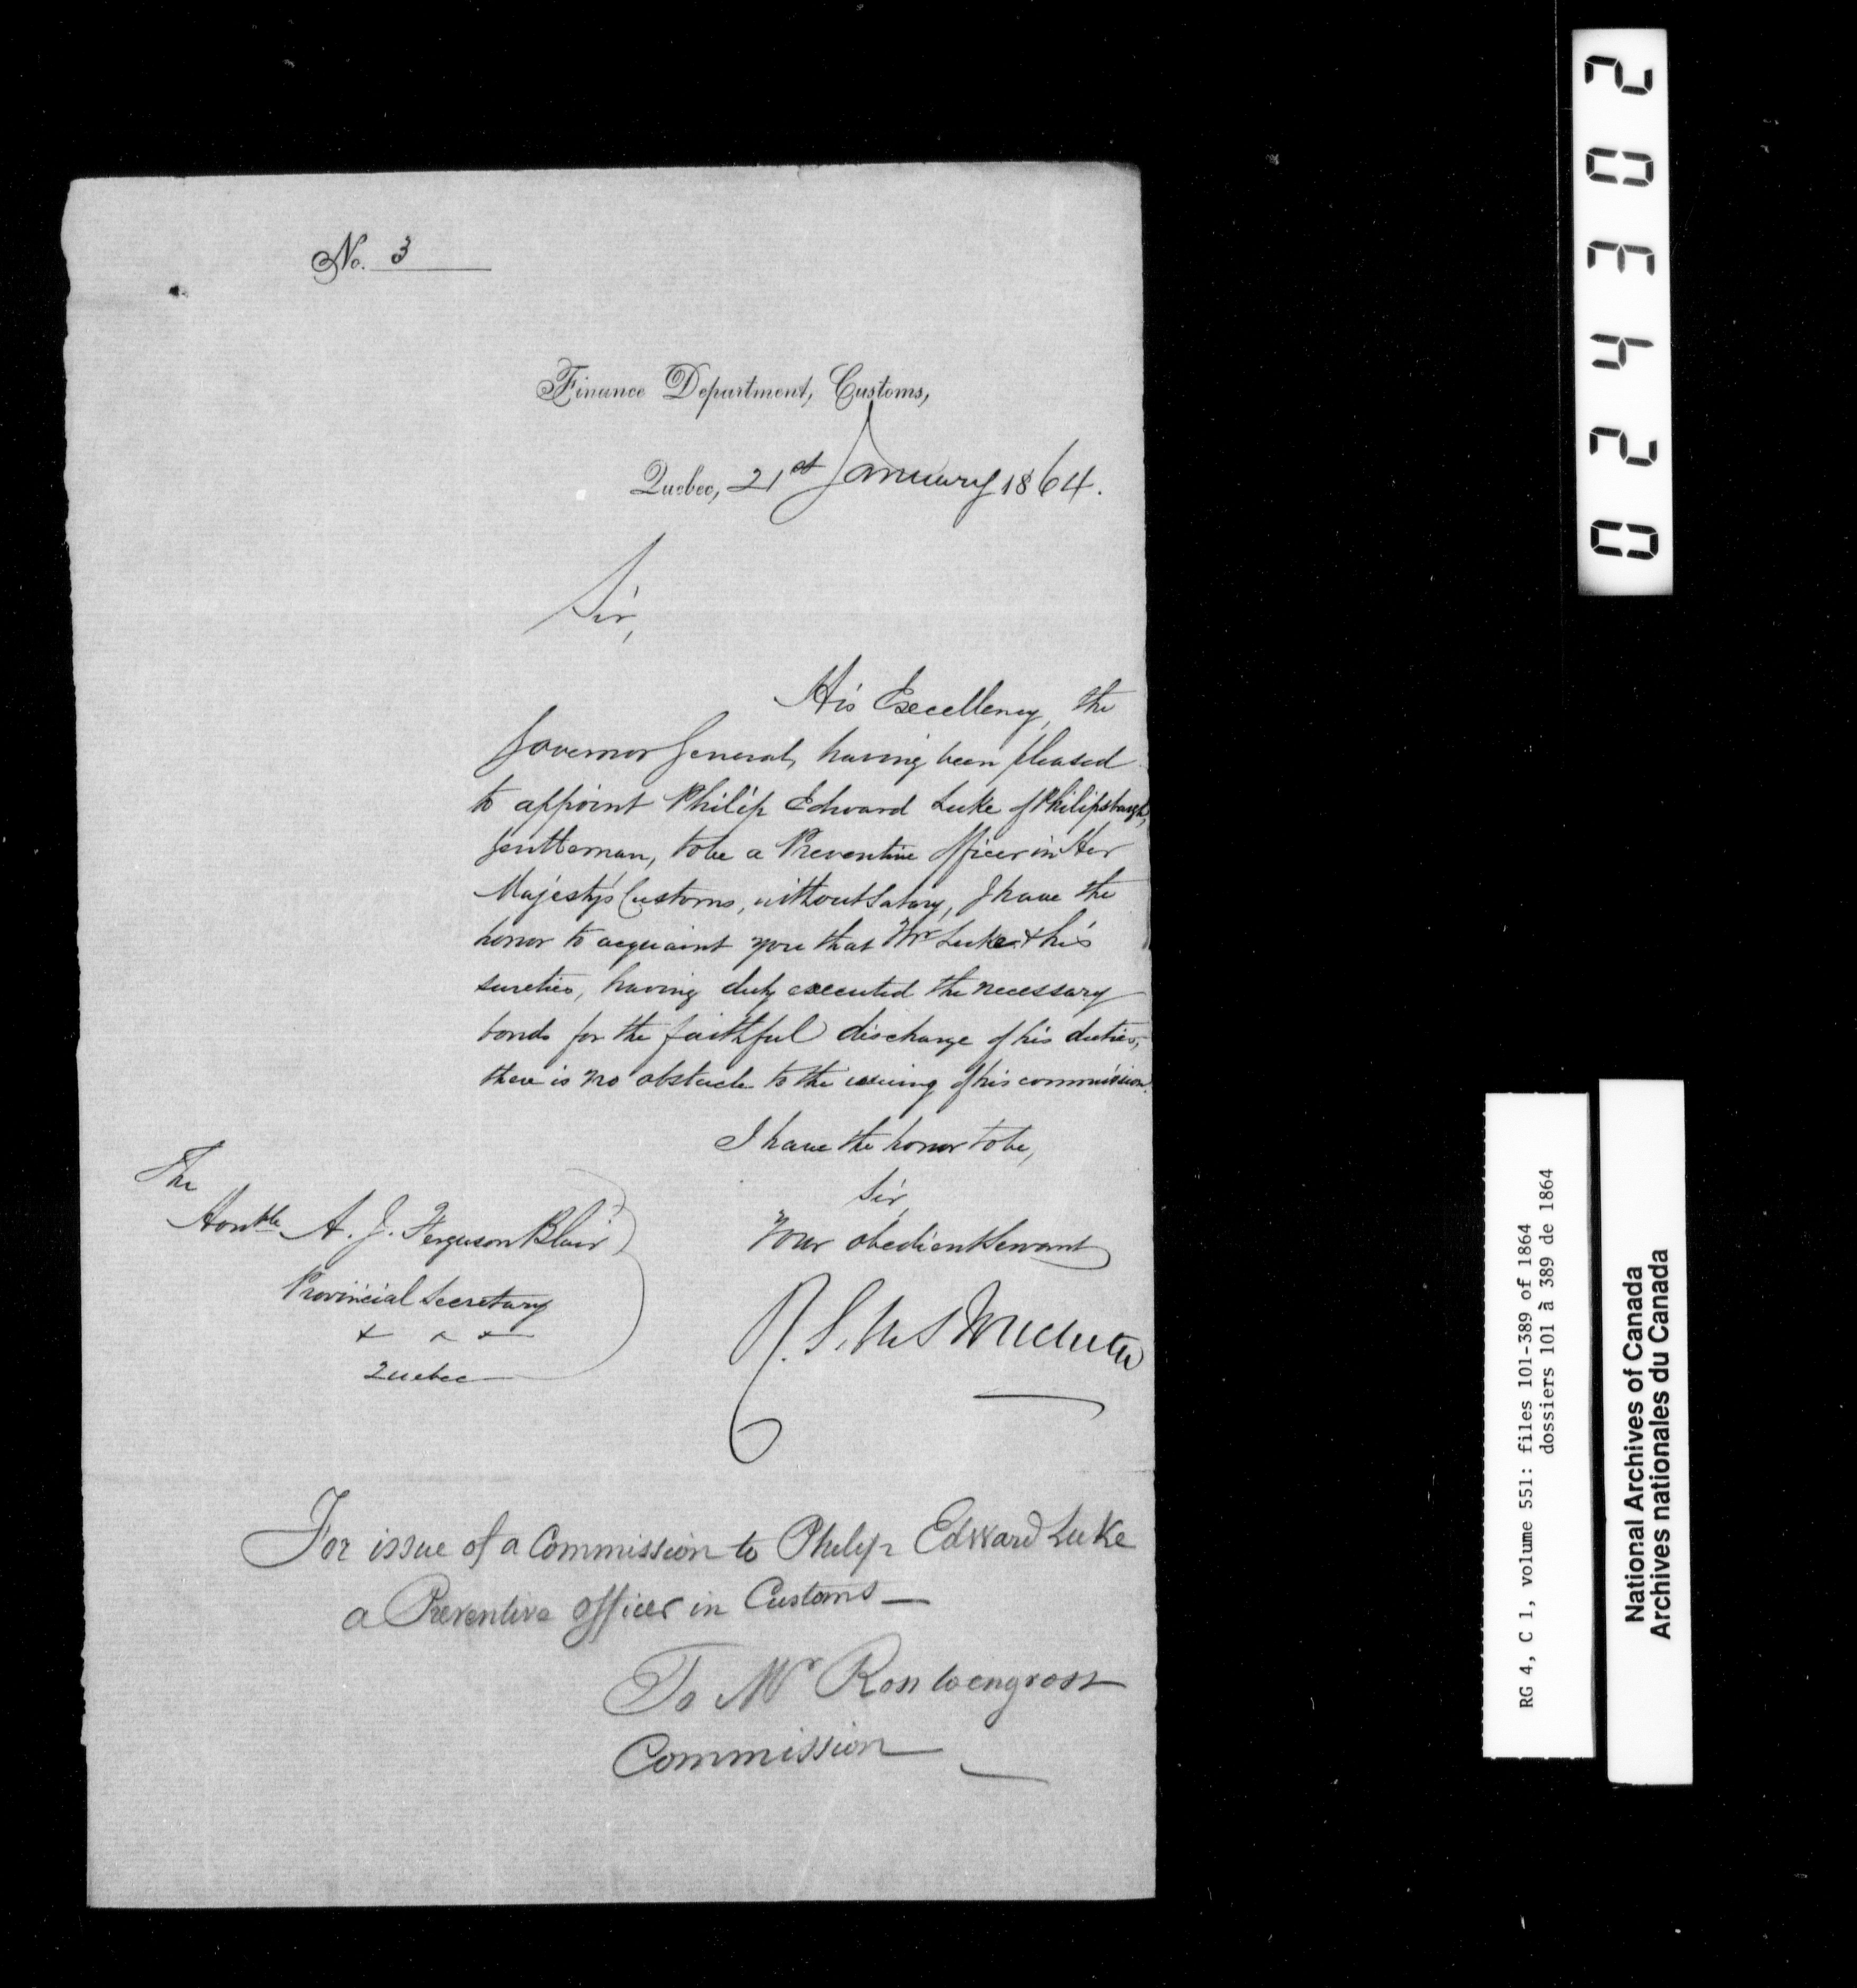 No. 3
Finance Department, Customs,
Quebec, 21st January 1864.
Sir,
His Excellency, the
Governor General, having been pleased
to appoint Philip Edward Luke of Philipsburgh,
Gentleman, to be a Preventive Officer in Her
Majesty's Customs, without Salary, I have the
honor to acquaint you that Mr Luke & his
sureties, having duly executed the necessary
bonds for the faithful discharge of his duties,
there is no obstacle to the issuing of his commission.
I have the honor to be,
Sir,
Your obedient Servant
R. S. M.
The
Honble A. J. Ferguson Blair
Provincial Secretary
Quebec
For issue of a Commission to Philip Edward Luke
a Preventive officer in Customs —
To Mr Ross to engross
Commission —
024302
RG 4, C 1, volume 551: files 101-389 of 1864
dossiers 101 à 389 de 1864
National Archives of Canada
Archives nationales du Canada